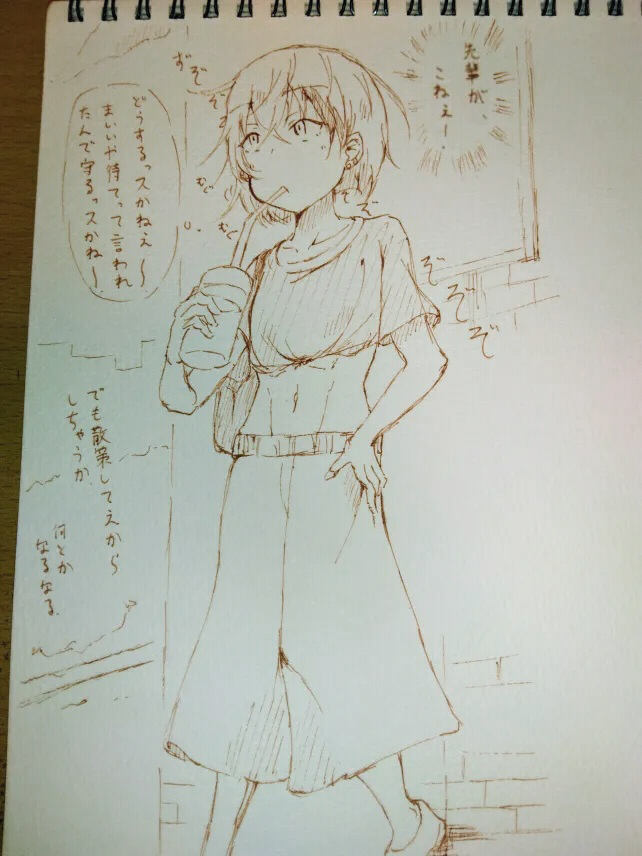 先輩が、
こねぇー、
ずぞぞ
どうするっスかねぇ〜
まぁいいや待てって言われ
たんで守るっスかね〜
むぐ
むぐ
ぞぞぞ
でも散策してえから
しちゃうか、
何とか
なるなる、